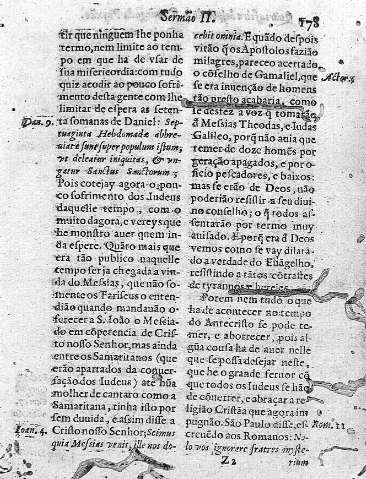 Sermão II.
178
tir que ninguem lhe ponha
termo, nem limite ao tem-
po em que ha de vsar de
sua misericordia: com tudo
quiz acodir ao pouco sofri-
mento desta gente com lhe
limitar de espera as seten-
Dan. 9.
ta somanas de Daniel: Sep-
tuaginta Hebdomadæ abbre-
uiatæ sunt super populum istum,
vt deleatur iniquitas, & vn-
gatur Sanctus Sanctorum;
Pois cotejay agora o pou-
co sofrimento dos Iudeus
daquelle tempo, com o
muito dagora, e vereys que
he monstro auer quem in-
da espere. Quãto mais que
era tão publico naquelle
tempo ser ja chegada a vin-
da do Messias, que não so-
mente os Fariseus o enten-
dião quando mandauão o-
ferecer a S. Ioão o Messia-
do em cõpetencia de Cris-
to nosso Senhor, mas ainda
entre os Samaritanos (que
erão apartados da conuer-
sação dos Iudeus) atè hũa
molher de cantaro como a
Samaritana, tinha isto por
sem duuida, e assim disse a
Ioan. 4.
Cristo nosso Senhor; Scimus
quia Messias venit, ille nos do-
cebit omnia. E quãdo despois
vitão q̃ os Apostolos fazião
milagres, pareceo acertado
o cõselho de Gamaliel, que
Actor. 5
se era inuenção de homens
tão presto acabaria, como
se desfez a voz q̃ tomarão
d Messias Theodas, e Iudas
Galileo, porq̃ não auia que
temer de doze homẽs por
geração apagados, e por o-
ficio pescadores, e baixos:
mas se erão de Deos, não
poderião resistir a seu diui-
no conselho; o q̃ todos as-
sentarão por termo muy
auisado. E porq̃ era d Deos
vemos como se vay dilatã-
do a verdade do Euãgelho,
resistindo a tãtos cõtrastes
de tyrannos e hereges.
Porem nem tudo o que
ha de acontecer no tempo
do Antecristo se pode te-
mer, e aborrecer, pois al-
gũa cousa ha de auer nelle
que se possa desejar neste,
que he o grande feruor cõ
que todos os Iudeus se hão
de cõuerter, e abraçar a re-
ligião Cristãa que agora im-
pugnão. São Paulo disse, es-
Rom. 11
creuẽdo aos Romanos: No-
lo vos ignorere fratres myste-
Z2
rium